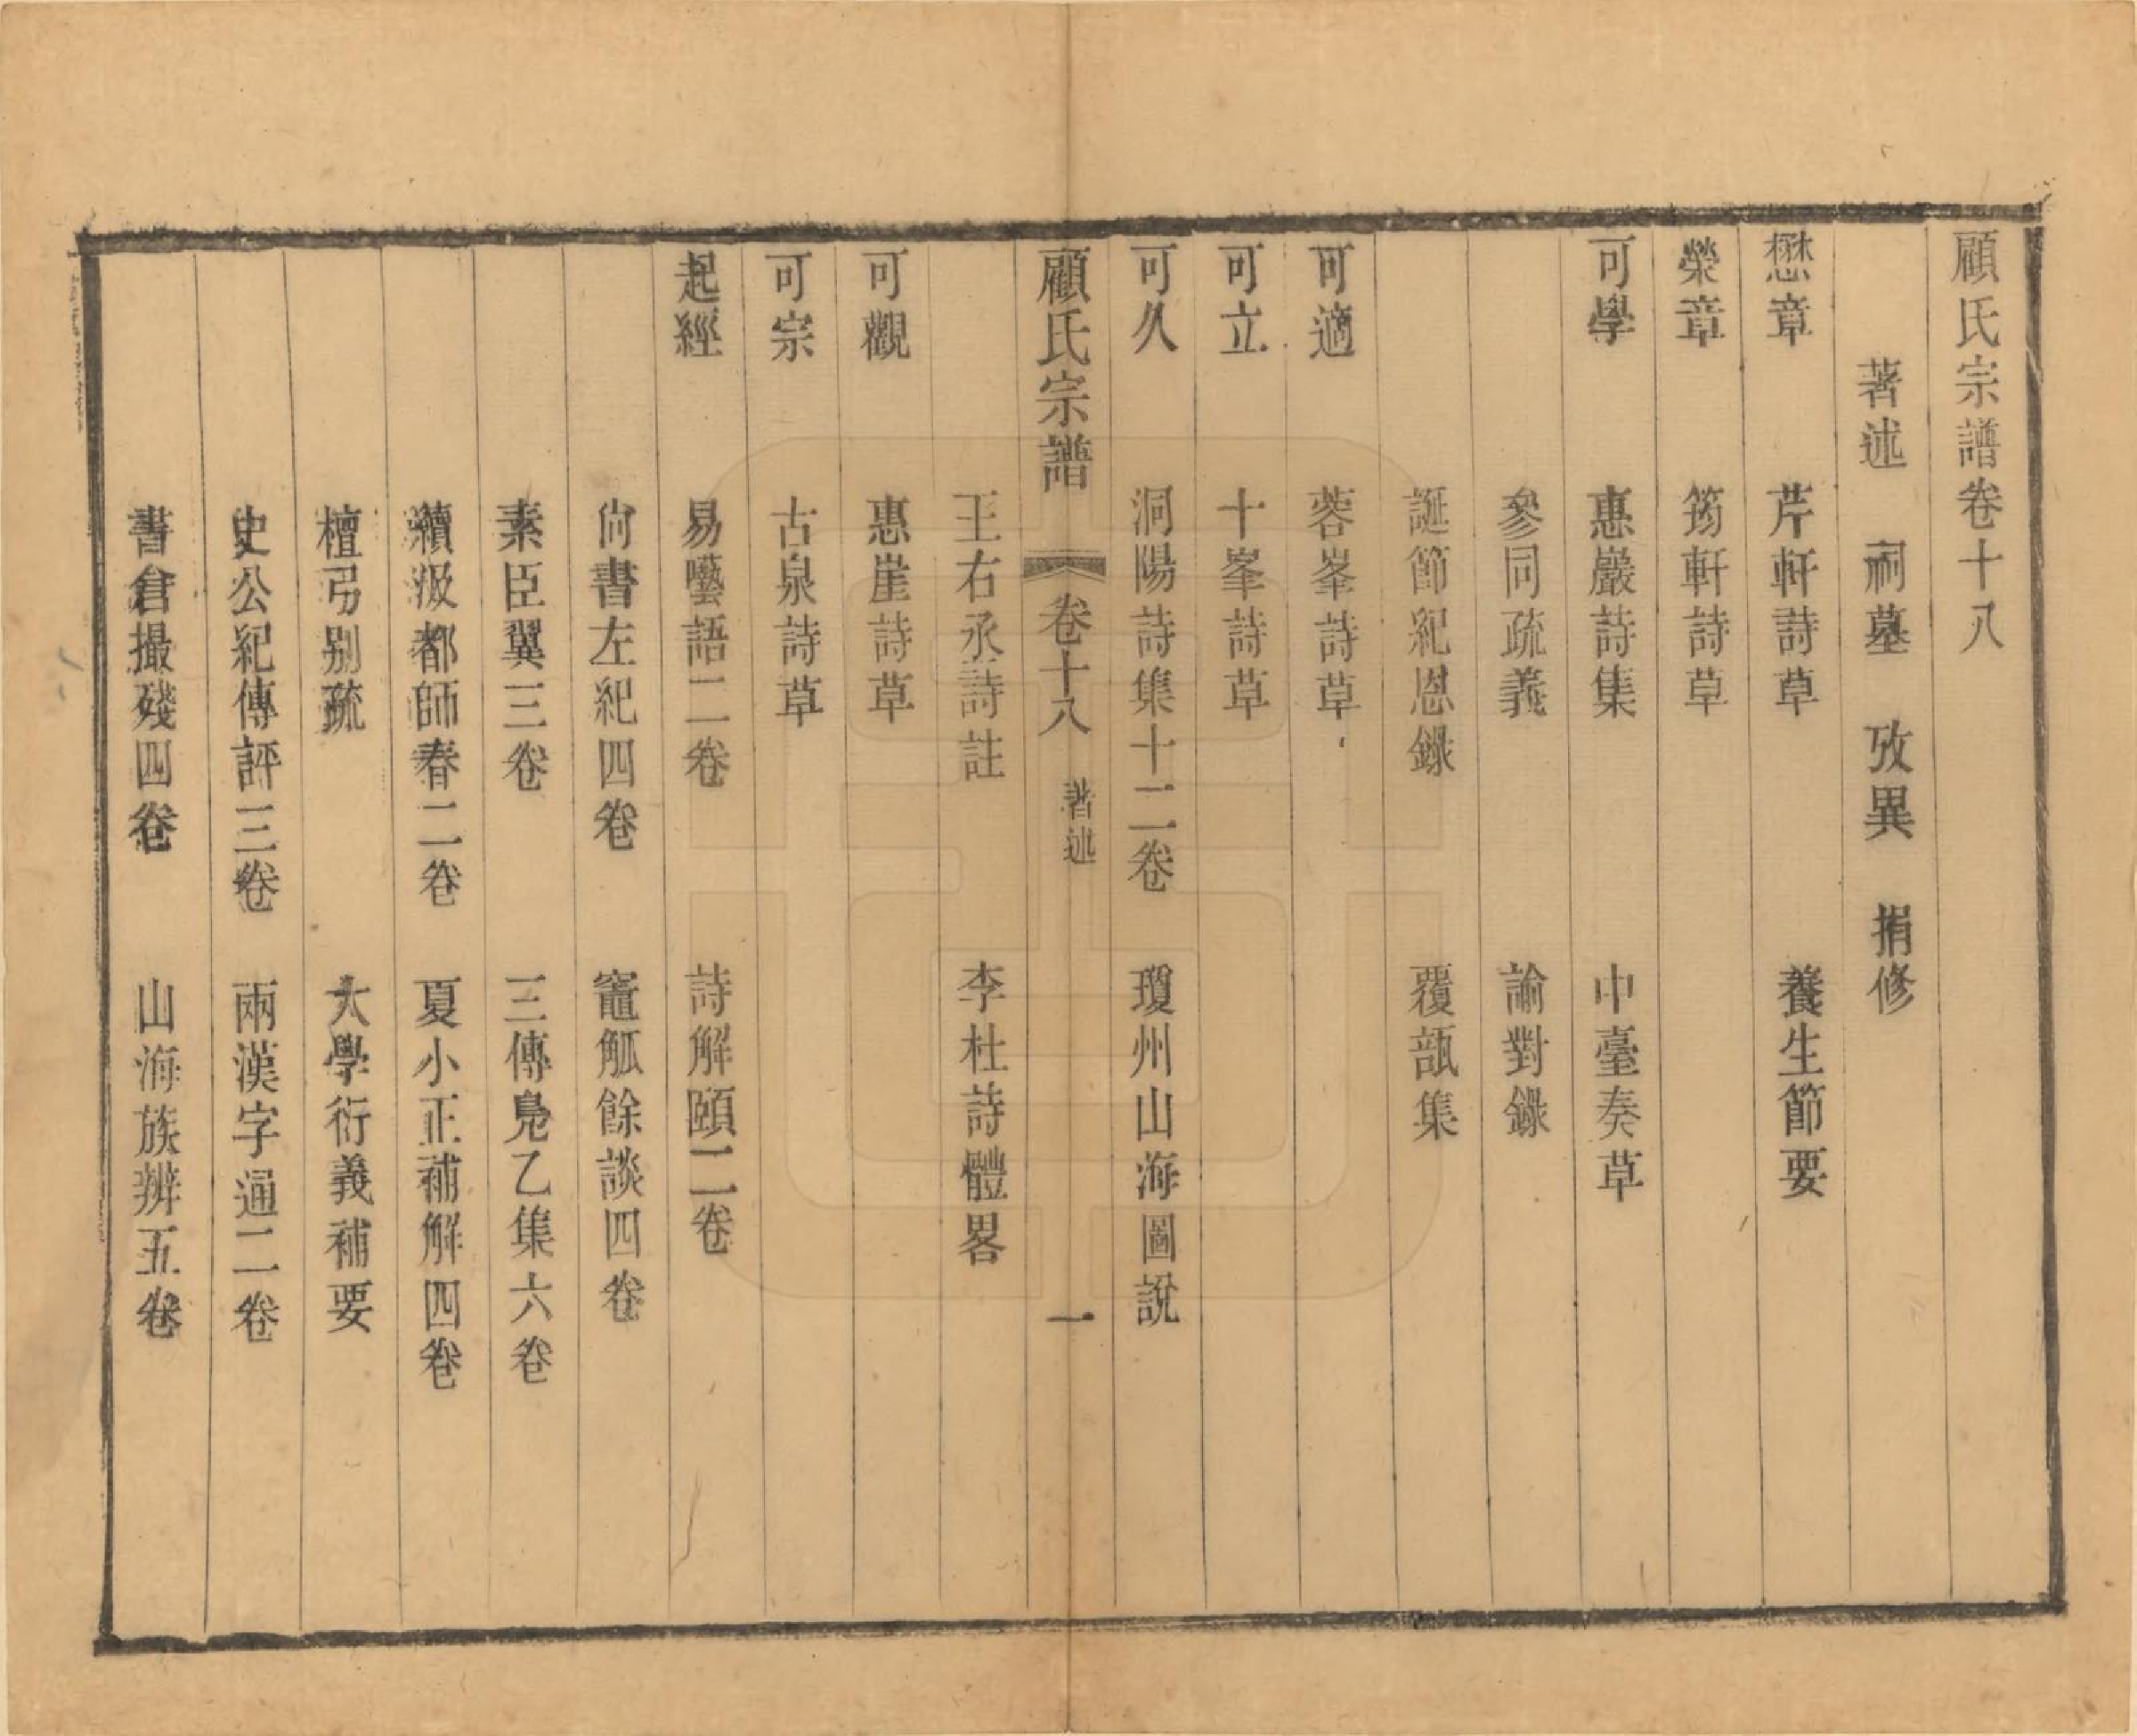 顧氏宗譜卷十八
著述 祠墓 攷異 捐修
懋章 芹軒詩草 養生節要
榮章 筠軒詩草
可學 惠巖詩集 中臺奏草
參同疏義 諭對錄
誕節紀恩錄 覆瓿集
可適 蓉峯詩草
可立 十峯詩草
可久 洞陽詩集十二卷 瓊州山海圖說
顧氏宗譜 卷十八 著述 一
王右丞詩註 李杜詩體畧
可觀 惠崖詩草
可宗 古泉詩草
起經 易囈語二卷 詩解頤二卷
尙書左紀四卷 竈觚餘談四卷
素臣翼三卷 三傳鳧乙集六卷
續汲都師春二卷 夏小正補解四卷
檀弓別疏 大學衍義補要
史公紀傳評三卷 兩漢字通二卷
書倉撮殘四卷 山海族辨五卷